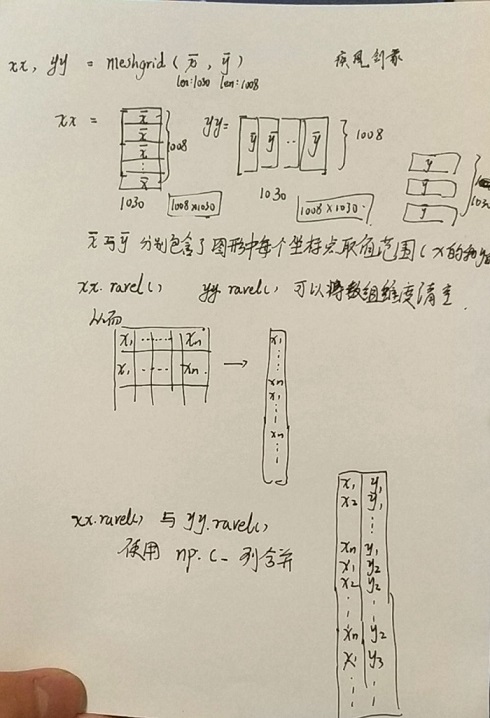 xx, yy = meshgrid ( x̄ , ȳ )
len:1030 len:1008
疾风剑豪
xx =
x̄
x̄
x̄
⋮
x̄
1008
1030
1008×1030
yy=
ȳ ȳ ··· ȳ
1008
1030
1008×1030
ȳ
ȳ
ȳ
x̄ 与 ȳ 分别包含了图形中每个坐标点取值范围 ( x的
xx.ravel() yy.ravel() 可以将数组维度清空.
从而
x₁ ······ xn
x₁ ···· xn
→
x₁
⋮
xn
x₁
⋮
xn
⋮
xx.ravel() 与 yy.ravel()
使用 np.c_ 列合并
x₁ y₁
x₂ y₁
⋮
xn y₁
x₁ y₂
x₂ y₂
⋮ ⋮
xn y₂
x₁ y₃
⋮ ⋮